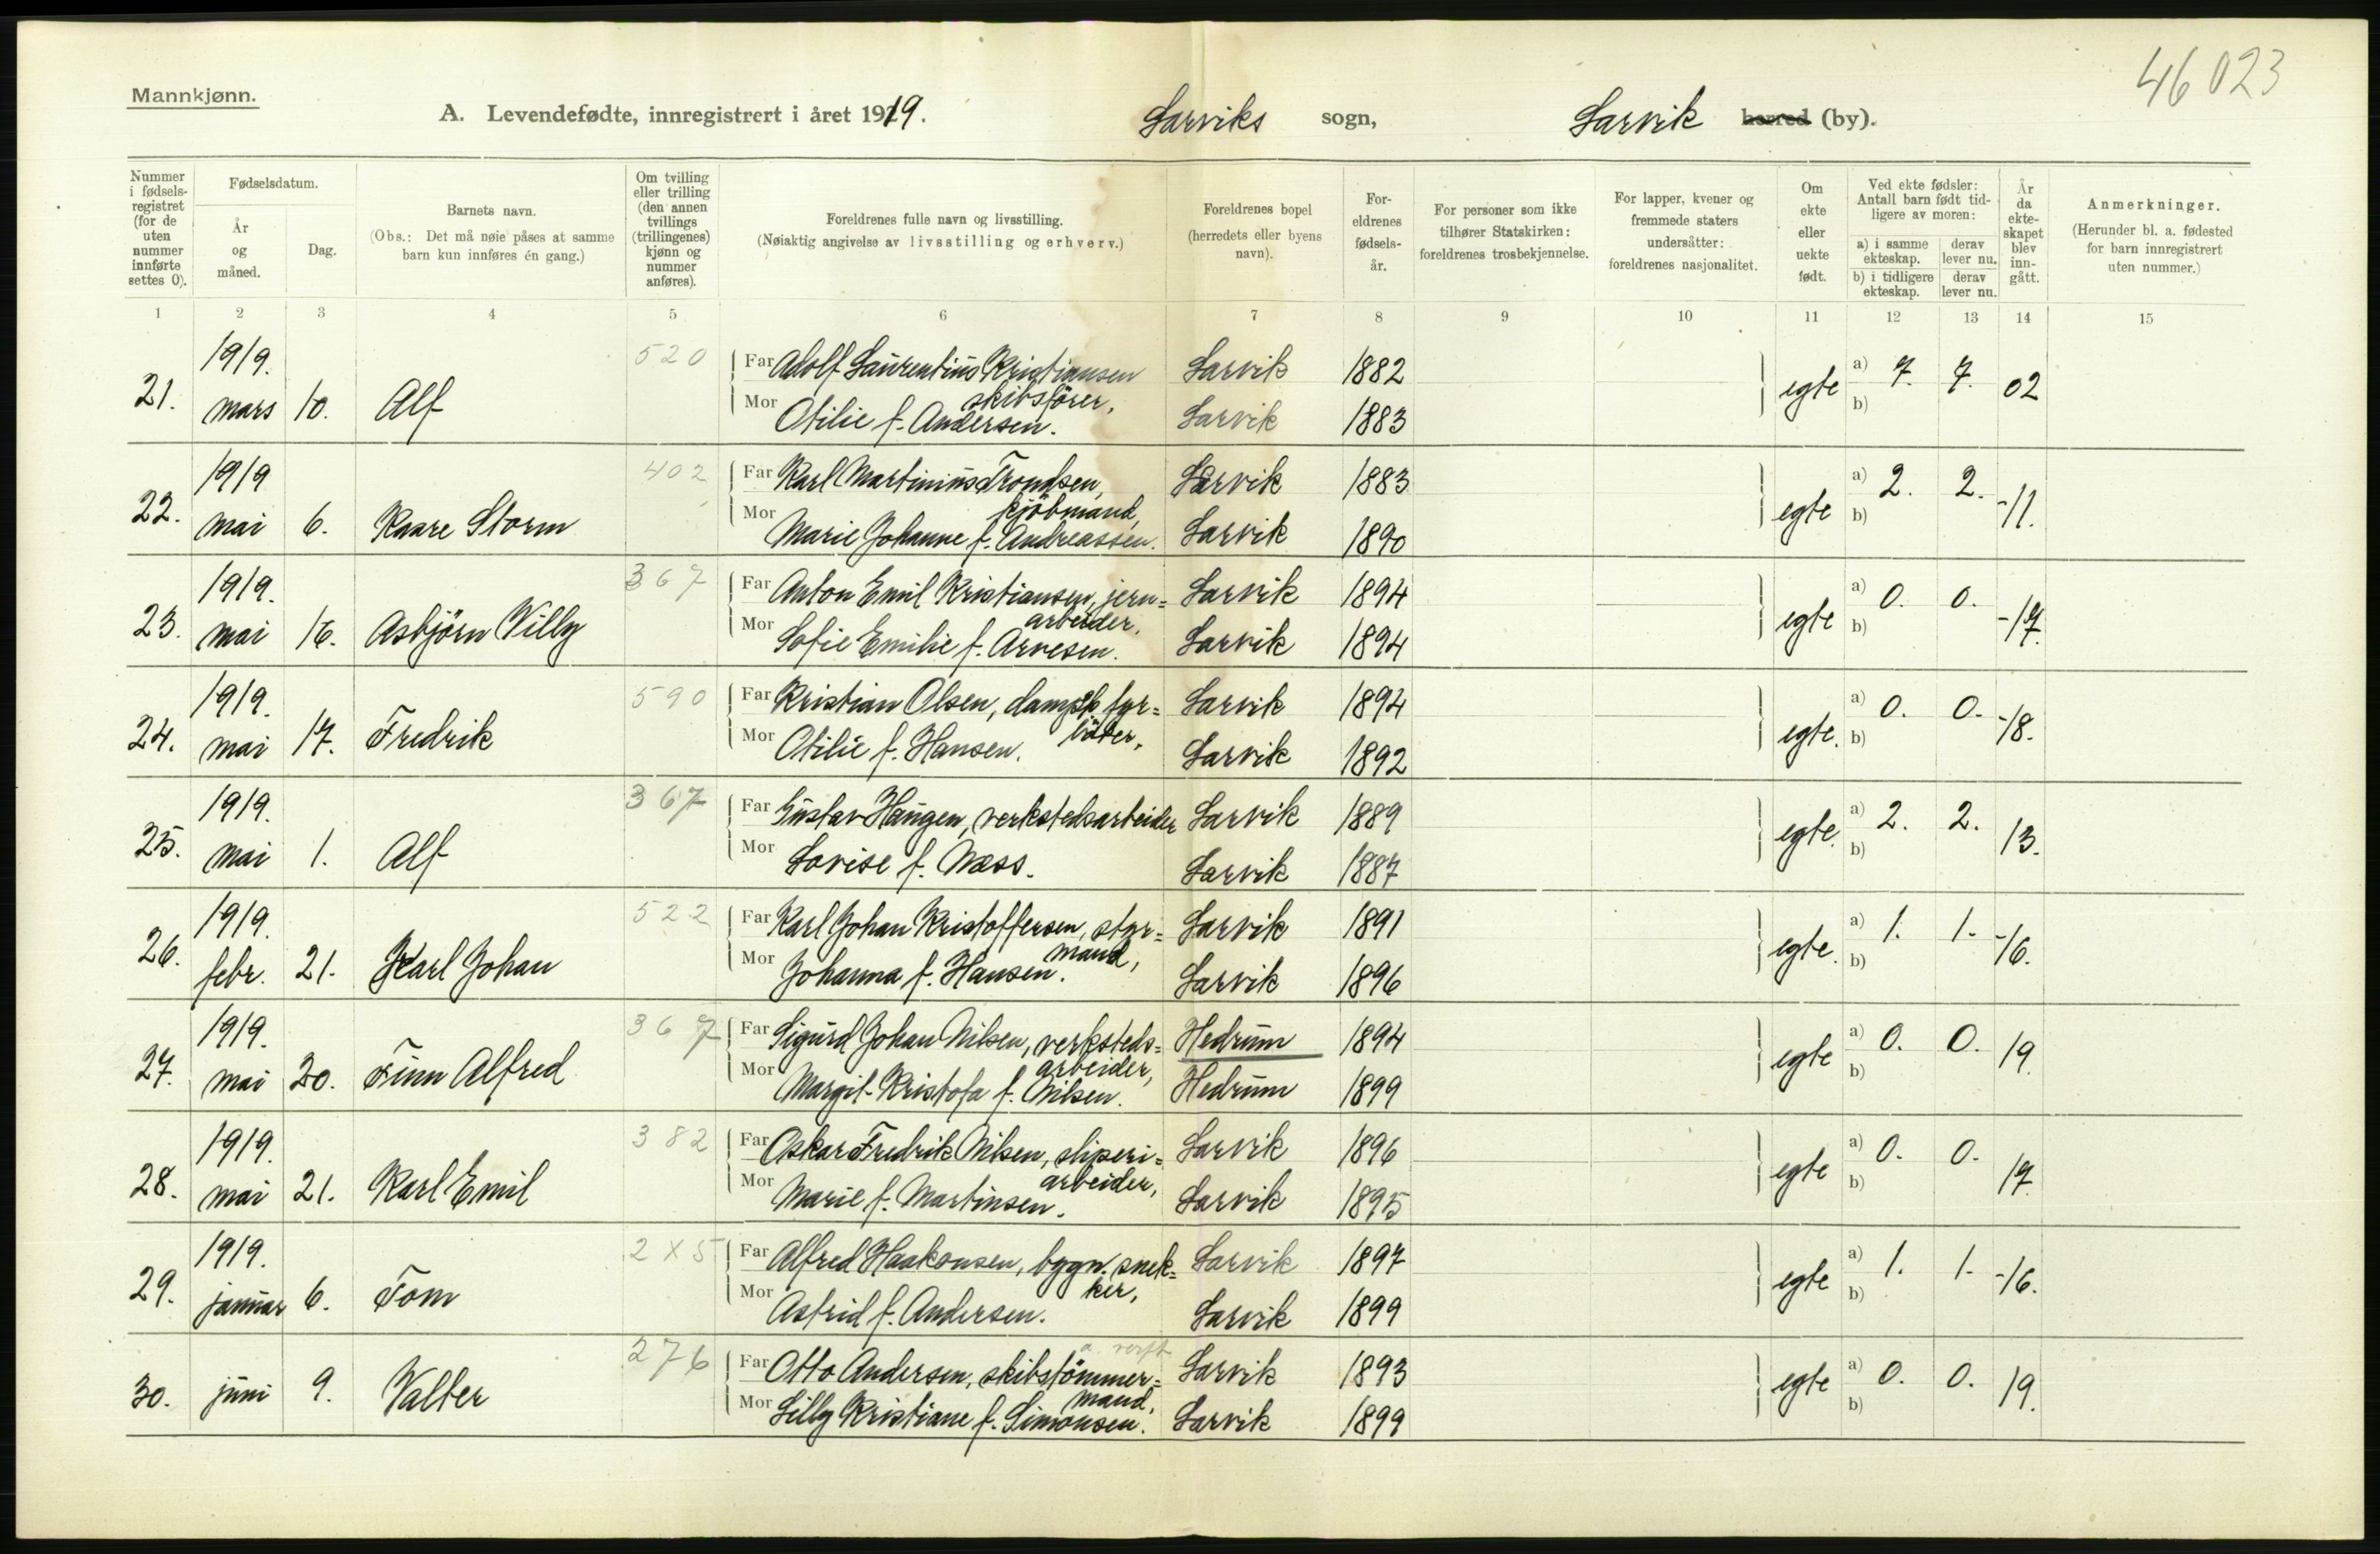 46 023
Mannkjønn.
A. Levendefødte, innregistrert i året 1919. Larviks sogn, Larvik herred (by).
Nummer i fødsels-registret (for de uten nummer innførte settes 0).
Fødselsdatum.
År og måned.
Dag.
Barnets navn.
(Obs.: Det må nøie påses at samme barn kun innføres én gang.)
Om tvilling eller trilling (den annen tvillings (trillingenes) kjønn og nummer anføres).
Foreldrenes fulle navn og livsstilling.
(Nøiaktig angivelse av livsstilling og erhverv.)
Foreldrenes bopel (herredets eller byens navn).
For-eldrenes fødsels-år.
For personer som ikke tilhører Statskirken: foreldrenes trosbekjennelse.
For lapper, kvener og fremmede staters undersåtter: foreldrenes nasjonalitet.
Om ekte eller uekte født.
Ved ekte fødsler: Antall barn født tid-ligere av moren:
a) i samme ekteskap. derav lever nu.
b) i tidligere ekteskap. derav lever nu.
År da ekte-skapet blev inn-gått.
Anmerkninger.
(Herunder bl. a. fødested for barn innregistrert uten nummer.)
1 2 3 4 5 6 7 8 9 10 11 12 13 14 15
21. 1919. mars 10. Alf 520
Far Adolf Laurentius Kristiansen skibsförer, Larvik 1882
Mor Otilie f. Andersen. Larvik 1883
egte a) 7. 7. b) 02
22. 1919 mai 6. Kaare Storm 402
Far Karl Martinius Trondsen, kjöbmand, Larvik 1883
Mor Marie Johanne f. Andreassen. Larvik 1890
egte a) 2. 2. b) -11.
23. 1919. mai 16. Asbjörn Villy 367
Far Anton Emil Kristiansen, jern=arbeider, Larvik 1894
Mor Sofie Emilie f. Arvesen. Larvik 1894
egte a) 0. 0. b) -17.
24. 1919. mai 17. Fredrik 590
Far Kristian Olsen, dampsk. fyr=böter, Larvik 1894
Mor Otilie f. Hansen. Larvik 1892
egte. a) 0. 0. b) -18.
25. 1919. mai 1. Alf 367
Far Gustav Haugen, verkstedsarbeider Larvik 1889
Mor Lovise f. Næss. Larvik 1887
egte. a) 2. 2. b) 13.
26. 1919. febr. 21. Karl Johan 522
Far Karl Johan Kristoffersen, styr=mand, Larvik 1891
Mor Johanna f. Hansen. Larvik 1896
egte. a) 1. 1. b) -16.
27. 1919. mai 20. Finn Alfred 367
Far Sigurd Johan Nilsen, verksteds=arbeider, Hedrum 1894
Mor Margit Kristofa f. Nilsen. Hedrum 1899
egte a) 0. 0. b) 19.
28. 1919. mai 21. Karl Emil 382
Far Oskar Fredrik Nilsen, sliperi=arbeider, Larvik 1896
Mor Marie f. Martinsen. Larvik 1895
egte a) 0. 0. b) 17.
29. 1919. januar 6. Tom 2X5
Far Alfred Haakonsen, bygn. snek=ker, Larvik 1897
Mor Astrid f. Andersen. Larvik 1899
egte a) 1. 1. b) -16.
30. juni 9. Valter 276
Far Otto Andersen, skibstömmer=mand, Larvik 1893
Mor Lilly Kristiane f. Simonsen. Larvik 1899
egte a) 0. 0. b) 19.